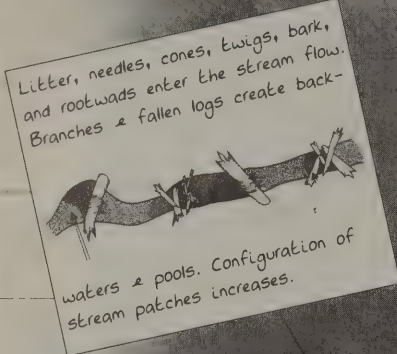 Litter, needles, cones, twigs, bark,
and rootwads enter the stream flow.
Branches & fallen logs create back-
waters & pools. Configuration of
stream patches increases.